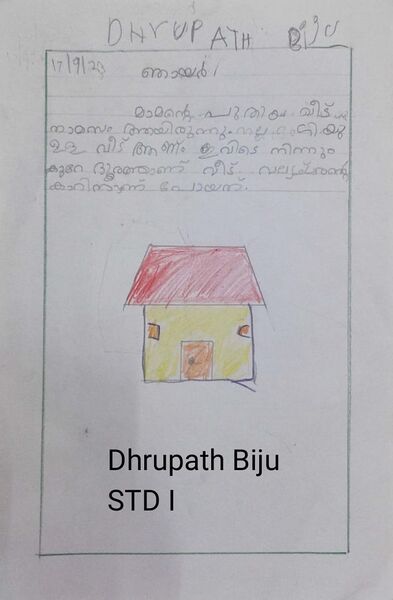 DHRUPATH Biju
17/9/23
ഞായർ
മാമന്റെ പുതിയ വീട്
താമസം ആയിരുന്നു. നല്ല
ഉള്ള വീട് ആണ് ഇവിടെ നിന്നും
കുറേ ദൂരത്താണ് വീട്.
കാറിനാണ് പോയത്.
Dhrupath Biju
STD I